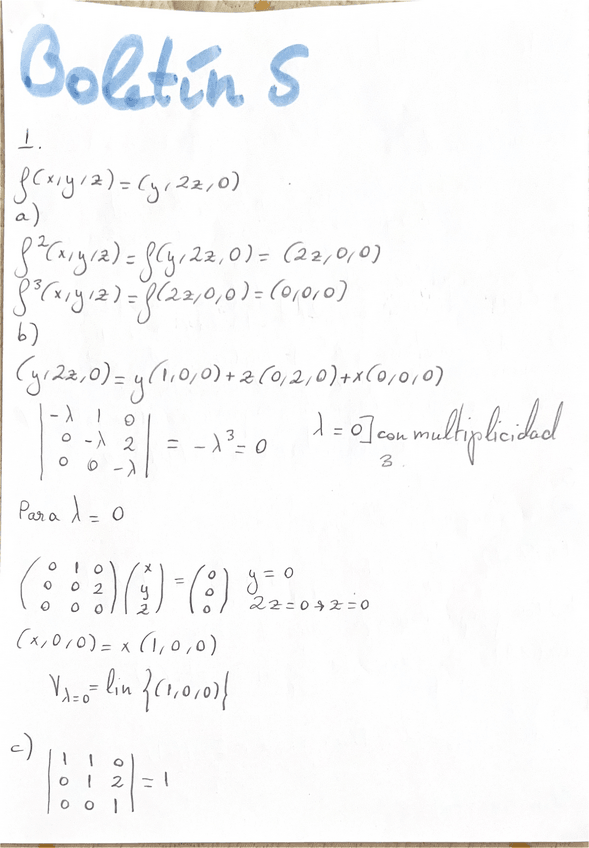 Boletín 5
1.
f(x,y,z)=(y,2z,0)
a)
f²(x,y,z)=f(y,2z,0)=(2z,0,0)
f³(x,y,z)=f(2z,0,0)=(0,0,0)
b)
(y,2z,0)=y(1,0,0)+z(0,2,0)+x(0,0,0)
| -λ 1 0 |
| 0 -λ 2 | = -λ³=0 λ=0] con multiplicidad
| 0 0 -λ | 3.
Para λ=0
( 0 1 0 ) ( x ) ( 0 ) y=0
( 0 0 2 ) ( y ) = ( 0 ) 2z=0→z=0
( 0 0 0 ) ( z ) ( 0 )
(x,0,0)=x(1,0,0)
V_λ=0=lin{(1,0,0)}
c)
| 1 1 0 |
| 0 1 2 | = 1
| 0 0 1 |